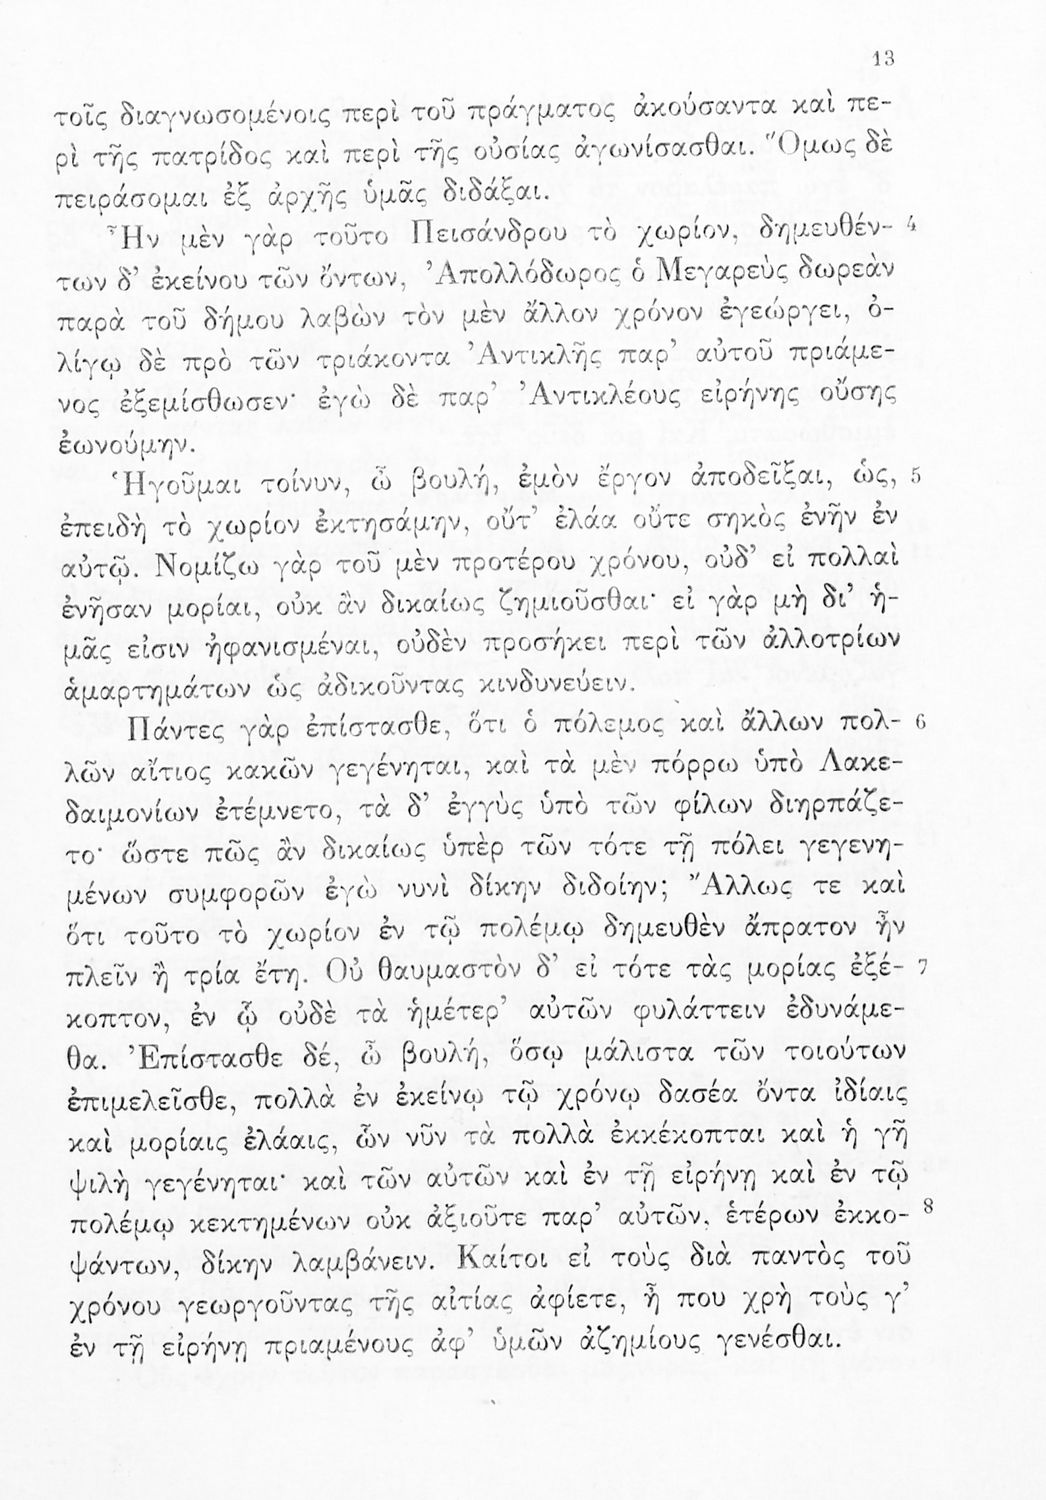 13
τοῖς διαγνωσομένοις περὶ τοῦ πράγματος ἀκούσαντα καὶ πε-
ρὶ τῆς πατρίδος καὶ περὶ τῆς οὐσίας ἀγωνίσασθαι. Ὅμως δὲ
πειράσομαι ἐξ ἀρχῆς ὑμᾶς διδάξαι.
Ἦν μὲν γὰρ τοῦτο Πεισάνδρου τὸ χωρίον, δημευθέν- 4
των δ’ ἐκείνου τῶν ὄντων, Ἀπολλόδωρος ὁ Μεγαρεὺς δωρεὰν
παρὰ τοῦ δήμου λαβὼν τὸν μὲν ἄλλον χρόνον ἐγεώργει, ὀ-
λίγῳ δὲ πρὸ τῶν τριάκοντα Ἀντικλῆς παρ’ αὐτοῦ πριάμε-
νος ἐξεμίσθωσεν· ἐγὼ δὲ παρ’ Ἀντικλέους εἰρήνης οὔσης
ἐωνούμην.
Ἡγοῦμαι τοίνυν, ὦ βουλή, ἐμὸν ἔργον ἀποδεῖξαι, ὡς, 5
ἐπειδὴ τὸ χωρίον ἐκτησάμην, οὔτ’ ἐλάα οὔτε σηκὸς ἐνῆν ἐν
αὐτῷ. Νομίζω γὰρ τοῦ μὲν προτέρου χρόνου, οὐδ’ εἰ πολλαὶ
ἐνῆσαν μορίαι, οὐκ ἂν δικαίως ζημιοῦσθαι· εἰ γὰρ μὴ δι’ ἡ-
μᾶς εἰσιν ἠφανισμέναι, οὐδὲν προσήκει περὶ τῶν ἀλλοτρίων
ἁμαρτημάτων ὡς ἀδικοῦντας κινδυνεύειν.
Πάντες γὰρ ἐπίστασθε, ὅτι ὁ πόλεμος καὶ ἄλλων πολ- 6
λῶν αἴτιος κακῶν γεγένηται, καὶ τὰ μὲν πόρρω ὑπὸ Λακε-
δαιμονίων ἐτέμνετο, τὰ δ’ ἐγγὺς ὑπὸ τῶν φίλων διηρπάζε-
το· ὥστε πῶς ἂν δικαίως ὑπὲρ τῶν τότε τῇ πόλει γεγενη-
μένων συμφορῶν ἐγὼ νυνὶ δίκην διδοίην; Ἄλλως τε καὶ
ὅτι τοῦτο τὸ χωρίον ἐν τῷ πολέμῳ δημευθὲν ἄπρατον ἦν
πλεῖν ἢ τρία ἔτη. Οὐ θαυμαστὸν δ’ εἰ τότε τὰς μορίας ἐξέ- 7
κοπτον, ἐν ᾧ οὐδὲ τὰ ἡμέτερ’ αὐτῶν φυλάττειν ἐδυνάμε-
θα. Ἐπίστασθε δέ, ὦ βουλή, ὅσῳ μάλιστα τῶν τοιούτων
ἐπιμελεῖσθε, πολλὰ ἐν ἐκείνῳ τῷ χρόνῳ δασέα ὄντα ἰδίαις
καὶ μορίαις ἐλάαις, ὧν νῦν τὰ πολλὰ ἐκκέκοπται καὶ ἡ γῆ
ψιλὴ γεγένηται· καὶ τῶν αὐτῶν καὶ ἐν τῇ εἰρήνῃ καὶ ἐν τῷ
πολέμῳ κεκτημένων οὐκ ἀξιοῦτε παρ’ αὐτῶν, ἑτέρων ἐκκο- 8
ψάντων, δίκην λαμβάνειν. Καίτοι εἰ τοὺς διὰ παντὸς τοῦ
χρόνου γεωργοῦντας τῆς αἰτίας ἀφίετε, ἦ που χρὴ τοὺς γ’
ἐν τῇ εἰρήνῃ πριαμένους ἀφ’ ὑμῶν ἀζημίους γενέσθαι.